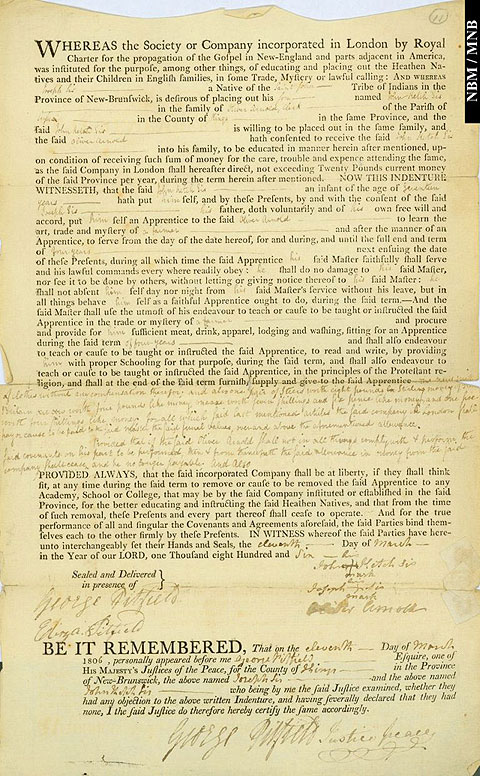 11
NBM / MNB
WHEREAS the Society or Company incorporated in London by Royal
Charter for the propagation of the Gospel in New-England and parts adjacent in America,
was instituted for the purpose, among other things, of educating and placing out the Heathen Na-
tives and their Children in English families, in some Trade, Mystery or lawful calling: AND WHEREAS
Joseph Sis a Native of the Tribe of Indians in the
Province of New-Brunswick, is desirous of placing out his Son named John Ketch Sis
in the family of Oliver Arnold of the Parish of
in the County of Kings in the same Province, and the
said John Ketch Sis is willing to be placed out in the same family, and
the said Oliver Arnold hath consented to receive the said John Ketch Sis
into his family, to be educated in manner herein after mentioned, up-
on condition of receiving such sum of money for the care, trouble and expence attending the same,
as the said Company in London shall hereafter direct, not exceeding Twenty Pounds current money
of the said Province per year, during the term herein after mentioned. NOW THIS INDENTURE
WITNESSETH, that the said John Ketch Sis an infant of the age of Seventeen
years hath put him self, and by these Presents, by and with the consent of the said
Joseph Sis his father, doth voluntarily and of his own free will and
accord, put him self an Apprentice to the said Oliver Arnold to learn the
art, trade and mystery of a farmer and after the manner of an
Apprentice, to serve from the day of the date hereof, for and during, and until the full end and term
of four years next ensuing the date
of these Presents, during all which time the said Apprentice his said Master faithfully shall serve
and his lawful commands every where readily obey: he shall do no damage to his said Master,
nor see it to be done by others, without letting or giving notice thereof to his said Master: he
shall not absent him self day nor night from his said Master's service without his leave, but in
all things behave him self as a faithful Apprentice ought to do, during the said term.—And the
said Master shall use the utmost of his endeavour to teach or cause to be taught or instructed the said
Apprentice in the trade or mystery of a farmer and procure
and provide for him sufficient meat, drink, apparel, lodging and washing, fitting for an Apprentice
during the said term of four years and shall also endeavour
to teach or cause to be taught or instructed the said Apprentice, to read and write, by providing
him with proper Schooling for that purpose, during the said term, and shall also endeavour to
teach or cause to be taught or instructed the said Apprentice, in the principles of the Protestant re-
ligion, and shall at the end of the said term furnish, supply and give to the said Apprentice
of clothes without any compensation therefor, and also
Provided that if the said Oliver Arnold shall not in all things comply with & perform the
said covenants on his part to be performed
PROVIDED ALWAYS, that the said incorporated Company shall be at liberty, if they shall think
fit, at any time during the said term to remove or cause to be removed the said Apprentice to any
Academy, School or College, that may be by the said Company instituted or established in the said
Province, for the better educating and instructing the said Heathen Natives, and that from the time
of such removal, these Presents and every part thereof shall cease to operate. And for the true
performance of all and singular the Covenants and Agreements aforesaid, the said Parties bind them-
selves each to the other firmly by these Presents. IN WITNESS whereof the said Parties have here-
unto interchangeably set their Hands and Seals, the eleventh Day of March
in the Year of our LORD, one Thousand eight Hundred and Six
John Ketch Sis
mark
Sealed and Delivered
in presence of
Joseph Sis
mark
George Pitfield
Oliver Arnold
Eliza Pitfield
BE IT REMEMBERED, That on the eleventh Day of March
1806, personally appeared before me George Pitfield Esquire, one of
HIS MAJESTY'S Justices of the Peace, for the County of Kings in the Province
of New-Brunswick, the above named Joseph Sis and the above named
John Ketch Sis who being by me the said Justice examined, whether they
had any objection to the above written Indenture, and having severally declared that they had
none, I the said Justice do therefore hereby certify the same accordingly.
George Pitfield Justice Peace